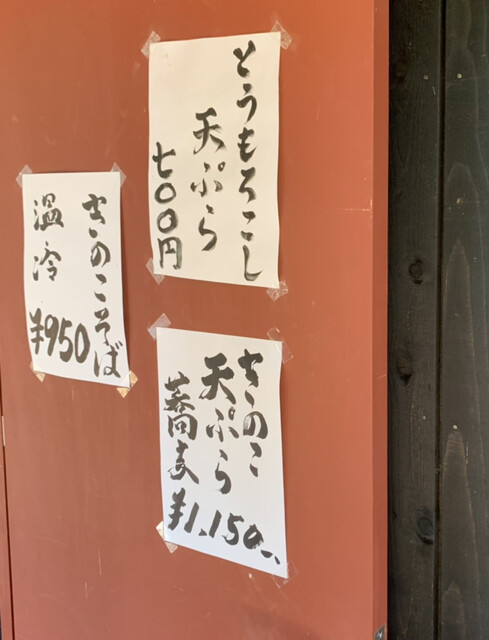 とうもろこし
天ぷら
七〇〇円
きのこそば
温冷 ¥950
きのこ
天ぷら
蕎麦
¥1,150-、